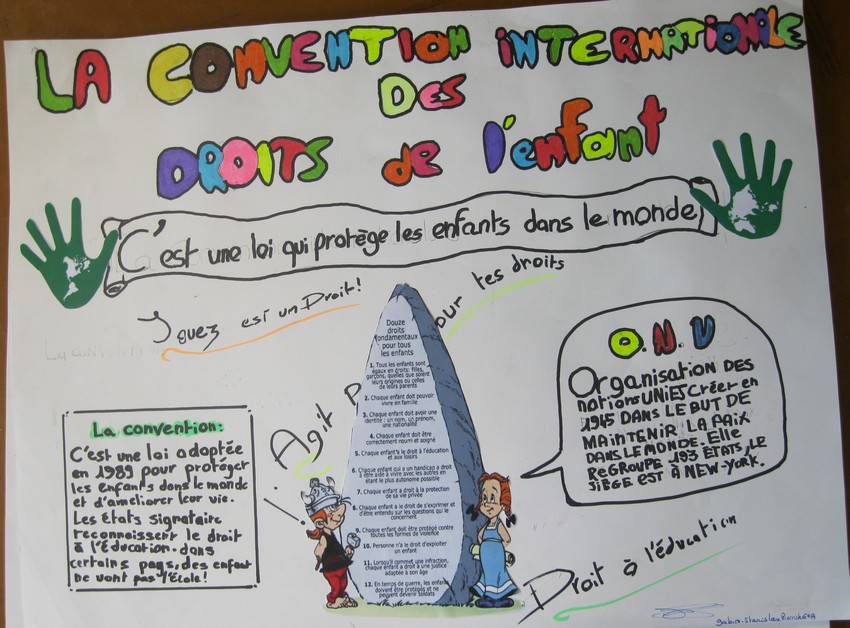 LA CONVENTION iNTERNATIONALE
DES
DROITS de l'enfant
C'est une loi qui protège les enfants dans le monde
Jouez est un Droit!
Agit pour tes droits
Douze
droits
fondamentaux
pour tous
les enfants
1. Tous les enfants sont
égaux en droits: filles,
garçons, quelles que soient
leurs origines ou celles
de leurs parents
2. Chaque enfant doit pouvoir
vivre en famille
3. Chaque enfant doit avoir une
identité : un nom, un prénom,
une nationalité
4. Chaque enfant doit être
correctement nourri et soigné
5. Chaque enfant a le droit à l'éducation
et aux loisirs
6. Chaque enfant qui a un handicap a droit
à être aidé à vivre avec les autres en
étant le plus autonome possible
7. Chaque enfant a droit à la protection
de sa vie privée
8. Chaque enfant a le droit de s'exprimer et
d'être entendu sur les questions qui le
concernent
9. Chaque enfant doit être protégé contre
toutes les formes de violence
10. Personne n'a le droit d'exploiter
un enfant
11. Lorsqu'il commet une infraction,
chaque enfant a droit à une justice
adaptée à son âge
12. En temps de guerre, les enfants
doivent être protégés et ne
peuvent devenir soldats
La convention:
C'est une loi adoptée
en 1989 pour protéger
les enfants dans le monde
et d'améliorer leur vie.
Les États signataire
reconnaissent le droit
à l'Éducation. dans
certains pays, des enfant
De vont pas l'École!
O.N.U
Organisation DES
nations UNIES Créer en
1945 DANS LE BUT DE
MAINTENIR LA PAIX
DANS LE MONDE. Elle
REGROUPE 193 ETATS, LE
SIEGE EST À NEW-YORK.
Droit à l'éducation